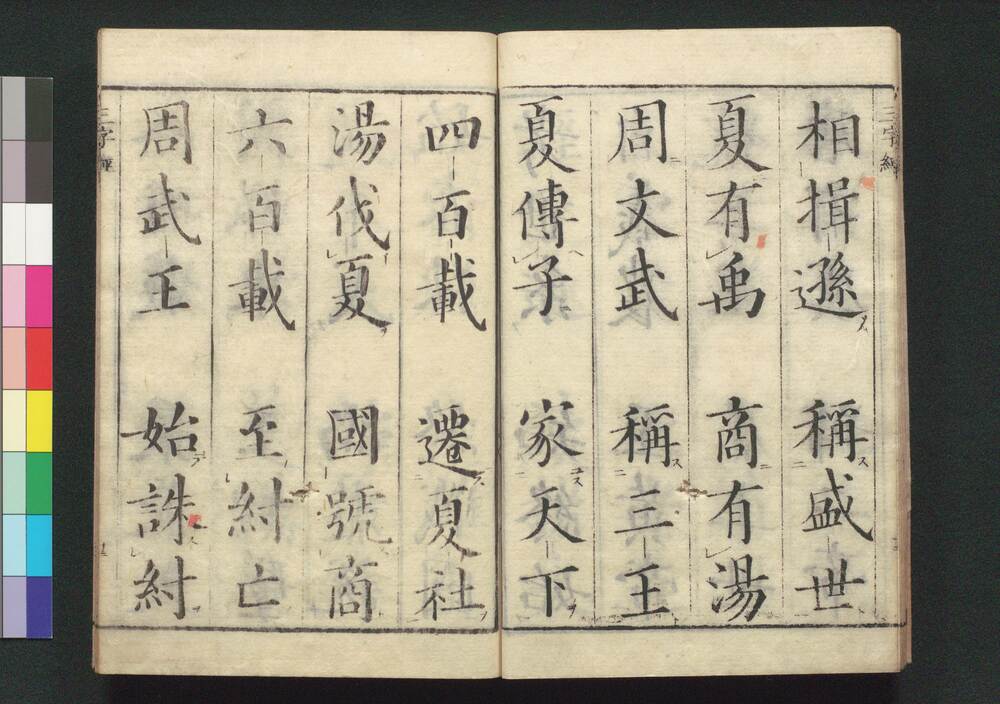 三字經
相揖遜 稱盛世
夏有禹 商有湯
周文武 稱三王
夏傳子 家天下
四百載 遷夏社
湯伐夏 國號商
六百載 至紂亡
周武王 始誅紂
三字經